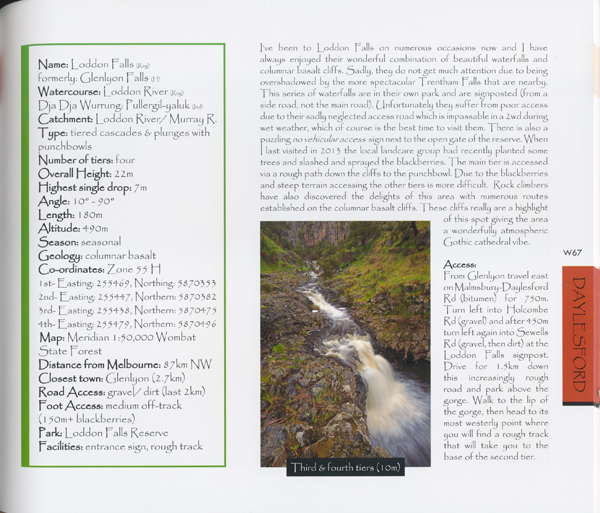 Name: Loddon Falls (Reg)
formerly: Glenlyon Falls
Watercourse: Loddon River (Reg)
Dja Dja Wurrung: Pullergil-yaluk (Ind)
Catchment: Loddon River/ Murray R.
Type: tiered cascades & plunges with
punchbowls
Number of tiers: four
Overall Height: 22m
Highest single drop: 7m
Angle: 10° - 90°
Length: 180m
Altitude: 490m
Season: seasonal
Geology: columnar basalt
Co-ordinates: Zone 55 H
1st- Easting: 255469, Northing: 5870353
2nd- Easting: 255447, Northern: 5870382
3rd- Easting: 255438, Northern: 5870475
4th- Easting: 255479, Northern: 5870496
Map: Meridian 1:50,000 Wombat
State Forest
Distance from Melbourne: 87km NW
Closest town: Glenlyon (2.7km)
Road Access: gravel/ dirt (last 2km)
Foot Access: medium off-track
(150m+ blackberries)
Park: Loddon Falls Reserve
Facilities: entrance sign, rough track
I've been to Loddon Falls on numerous occasions now and I have
always enjoyed their wonderful combination of beautiful waterfalls and
columnar basalt cliffs. Sadly, they do not get much attention due to being
overshadowed by the more spectacular Trentham Falls that are nearby.
This series of waterfalls are in their own park and are signposted (from a
side road, not the main road). Unfortunately they suffer from poor access
due to their sadly neglected access road which is impassable in a 2wd during
wet weather, which of course is the best time to visit them. There is also a
puzzling no vehicular access sign next to the open gate of the reserve. When
I last visited in 2013 the local landcare group had recently planted some
trees and slashed and sprayed the blackberries. The main tier is accessed
via a rough path down the cliffs to the punchbowl. Due to the blackberries
and steep terrain accessing the other tiers is more difficult. Rock climbers
have also discovered the delights of this area with numerous routes
established on the columnar basalt cliffs. These cliffs really are a highlight
of this spot giving the area
a wonderfully atmospheric
Gothic cathedral vibe.
Access:
From Glenlyon travel east
on Malmsbury-Daylesford
Rd (bitumen) for 750m.
Turn left into Holcombe
Rd (gravel) and after 450m
turn left again into Sewells
Rd (gravel, then dirt) at the
Loddon Falls signpost.
Drive for 1.5km down
this increasingly rough
road and park above the
gorge. Walk to the lip of
the gorge, then head to its
most westerly point where
you will find a rough track
that will take you to the
base of the second tier.
Third & fourth tiers (10m)
W67
DAYLESFORD